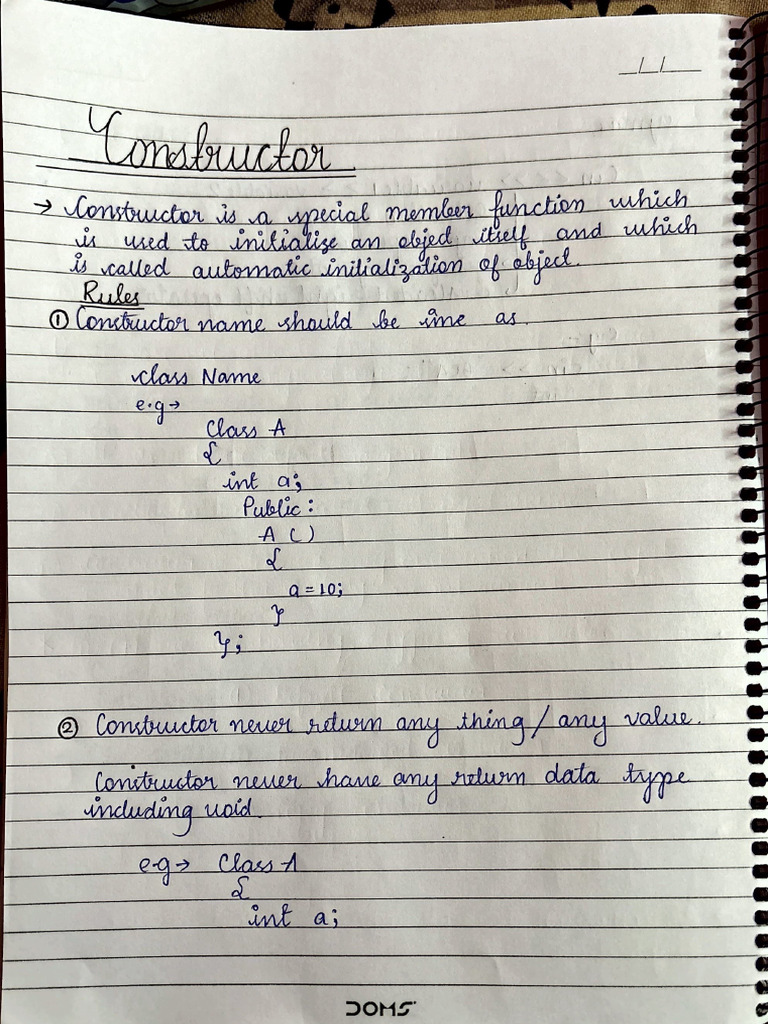 _/_/_
Constructor
→ Constructor is a special member function which
is used to initialise an object itself and which
is called automatic initialization of object.
Rules
① Constructor name should be ime as.
class Name
e.g→
Class A
{
int a;
Public:
A ( )
{
a=10;
}
};
② Constructor never return any thing / any value.
Constructor never have any return data type
including void.
e.g→ Class A
{
int a;
DOMS